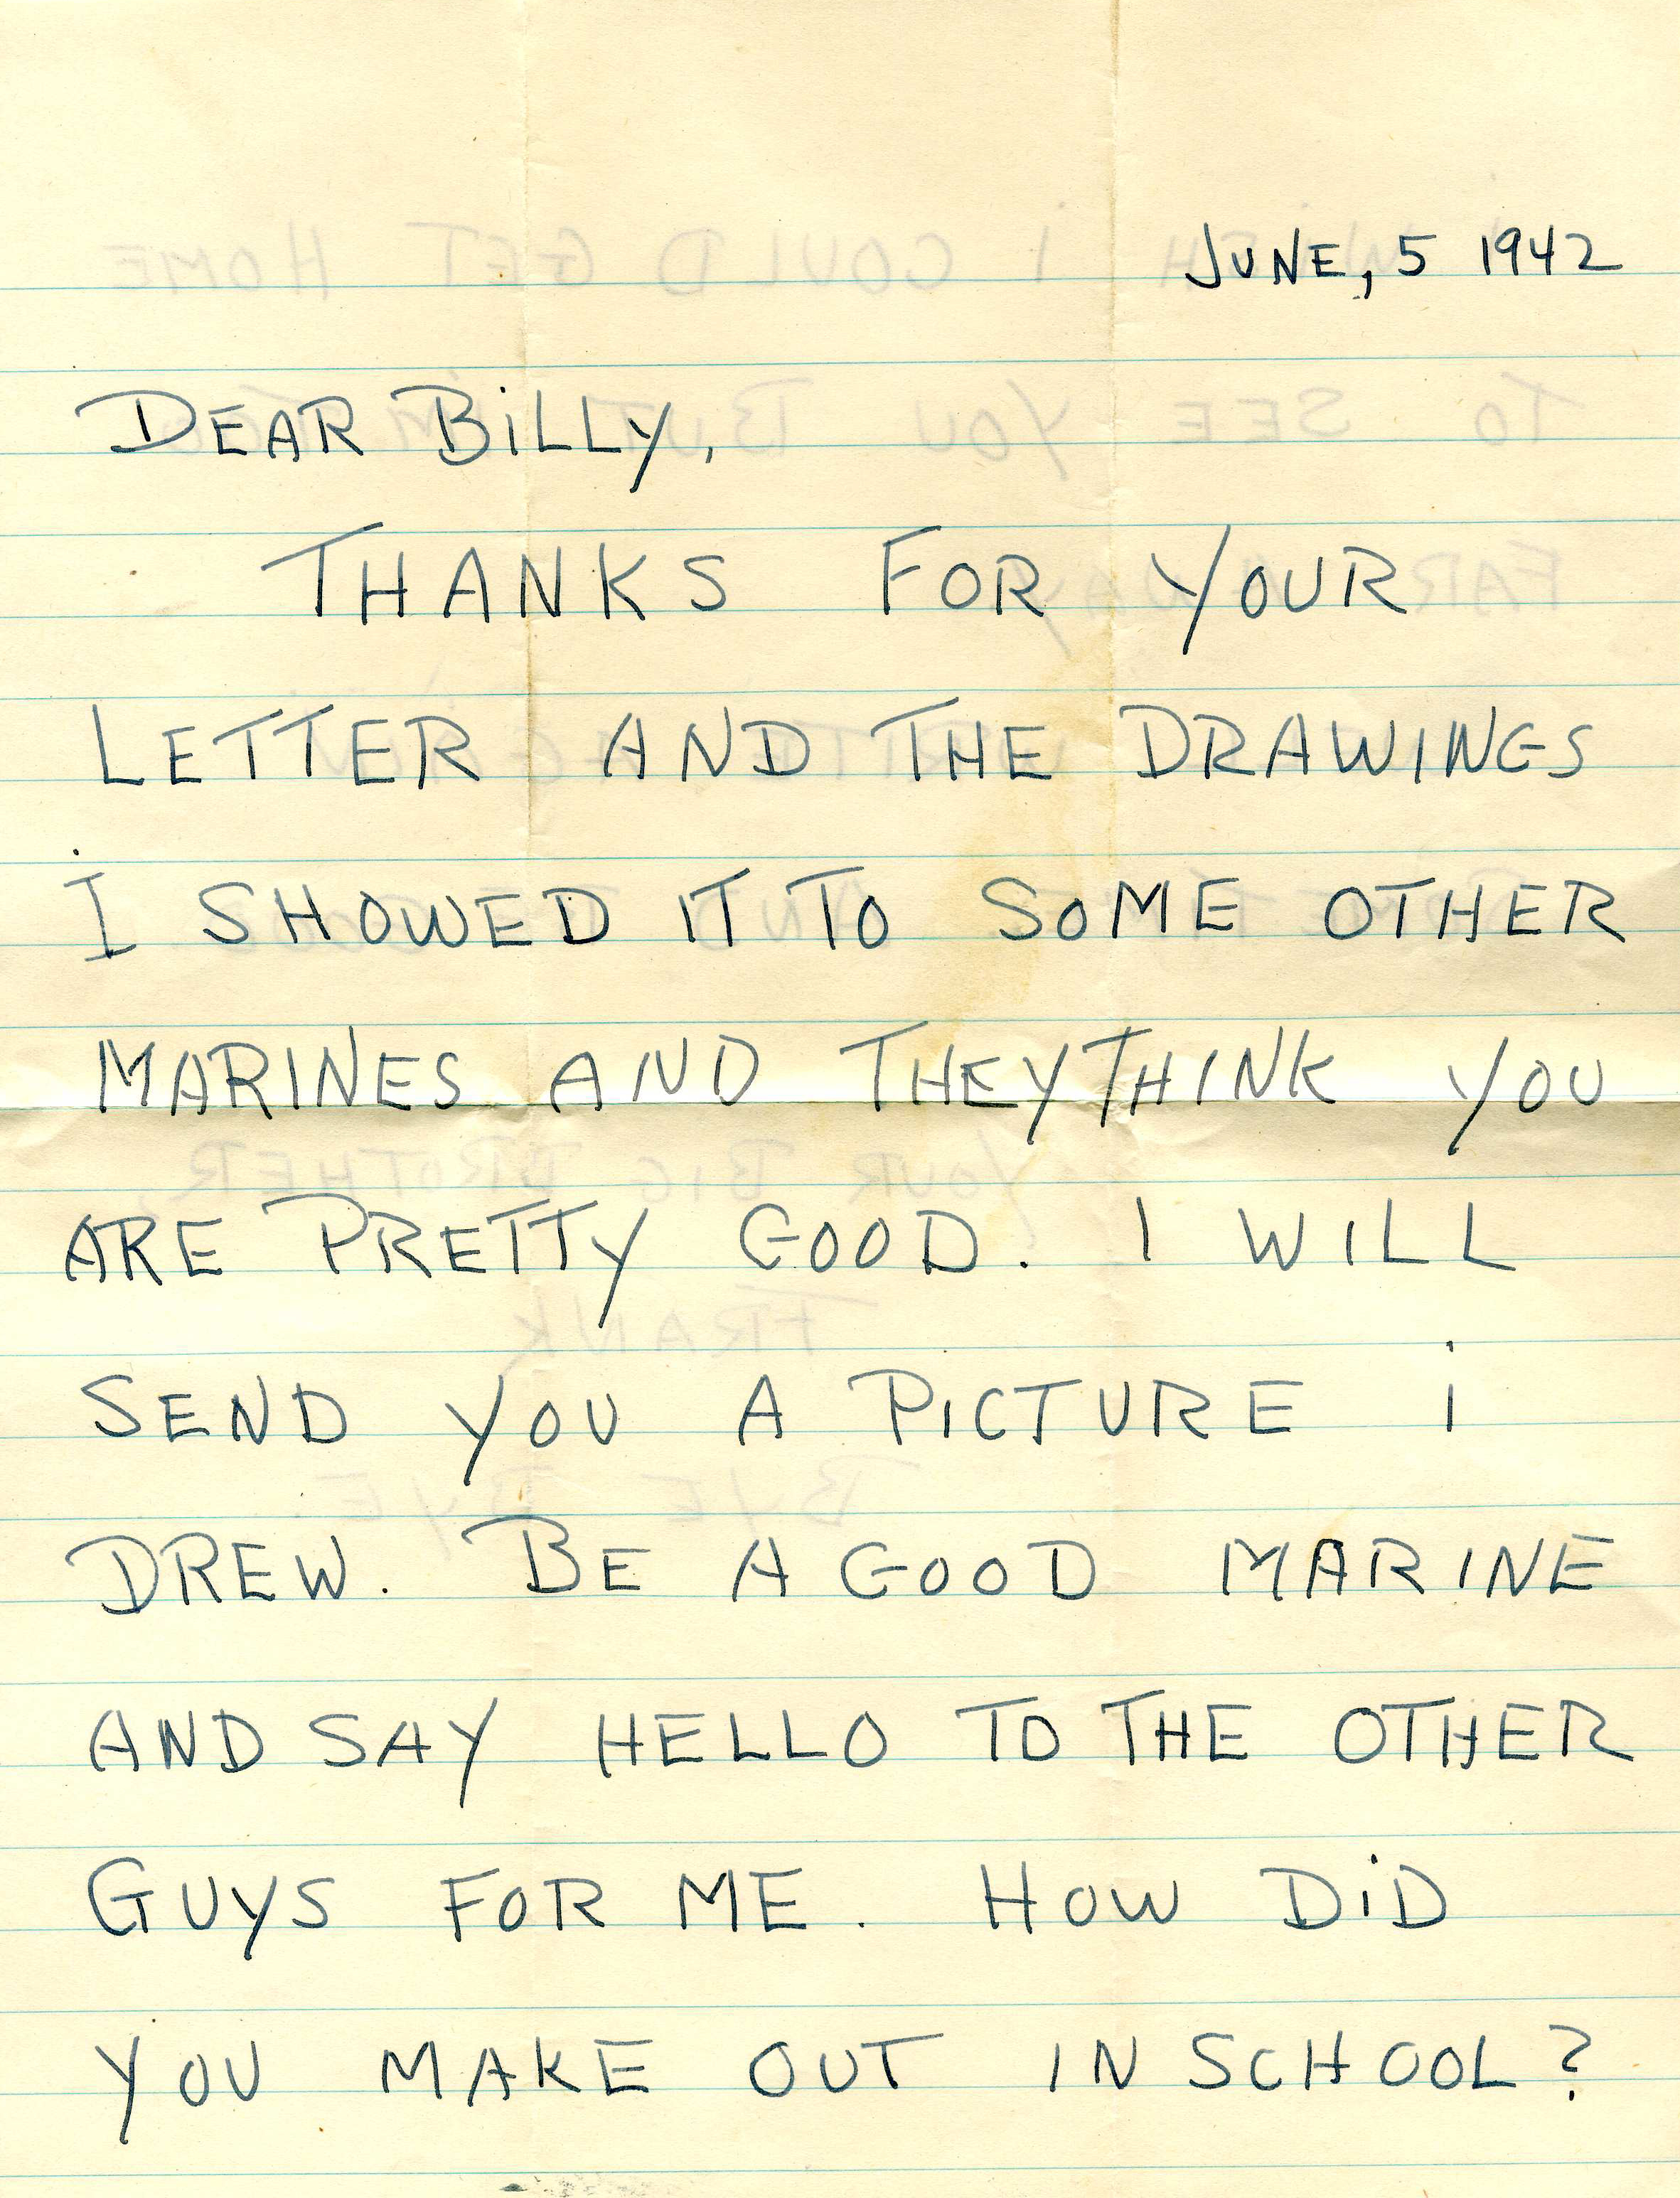 JUNE, 5 1942
DEAR BiLLY,
THANKS FOR YOUR
LETTER AND THE DRAWINGS
I SHOWED IT TO SOME OTHER
MARINES AND THEY THINK YOU
ARE PRETTY GOOD. I WILL
SEND YOU A PICTURE i
DREW. BE A GOOD MARINE
AND SAY HELLO TO THE OTHER
GUYS FOR ME. HOW DiD
YOU MAKE OUT IN SCHOOL?